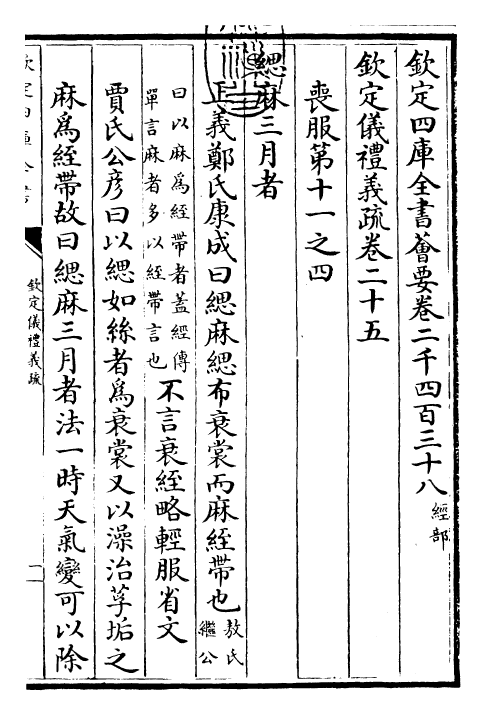 欽定四庫全書薈要卷二千四百三十八經部
欽定儀禮義疏卷二十五
喪服第十一之四
緦麻三月者
正義鄭氏康成曰緦麻緦布衰裳而麻絰帶也敖氏繼公
曰以麻為絰帶者蓋經傳單言麻者多以絰帶言也不言衰絰略輕服省文
賈氏公彦曰以緦如絲者為衰裳又以澡治莩垢之
麻為絰帶故曰緦麻三月者法一時天氣變可以除
欽定儀禮義疏
一